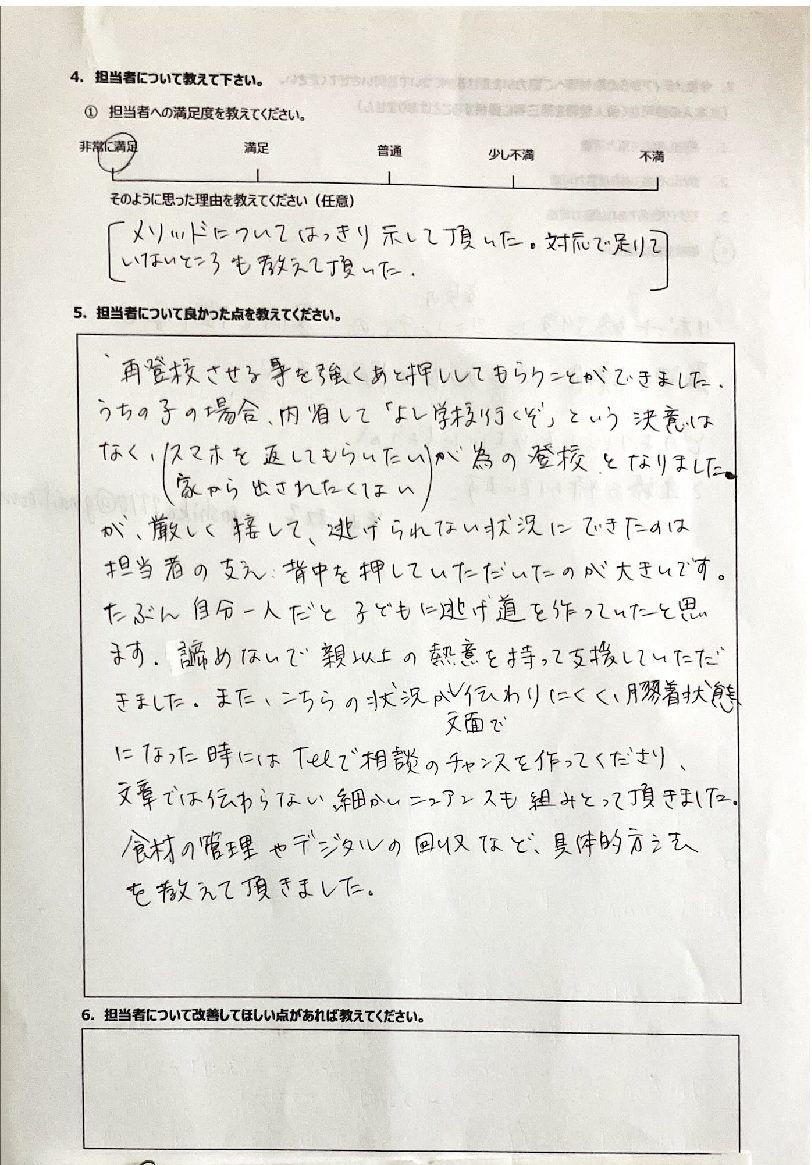 4. 担当者について教えて下さい。
① 担当者への満足度を教えてください。
非常に満足 満足 普通 少し不満 不満
そのように思った理由を教えてください（任意）
メソッドについてはっきり示して頂いた。対応で足りて
いないところも教えて頂いた.
5. 担当者について良かった点を教えてください。
再登校させる事を強くあと押ししてもらうことができました.
うちの子の場合、内省して「よし学校行くぞ」という決意は
なく、(スマホを返してもらいたい)が為の登校となりました
(家から出されたくない)
が、厳しく接して、逃げられない状況にできたのは
担当者の支え、背中を押していただいたのが大きいです。
たぶん自分一人だと子どもに逃げ道を作っていたと思い
ます. 諦めないで親以上の熱意を持って支援していただ
きました。また、こちらの状況が伝わりにくく、膠着状態
文面で
になった時にはTelで相談のチャンスを作ってくださり、
文章では伝わらない細かいニュアンスも組みとって頂きました.
食材の管理やデジタルの回収など、具体的方法
を教えて頂きました。
6. 担当者について改善してほしい点があれば教えてください。